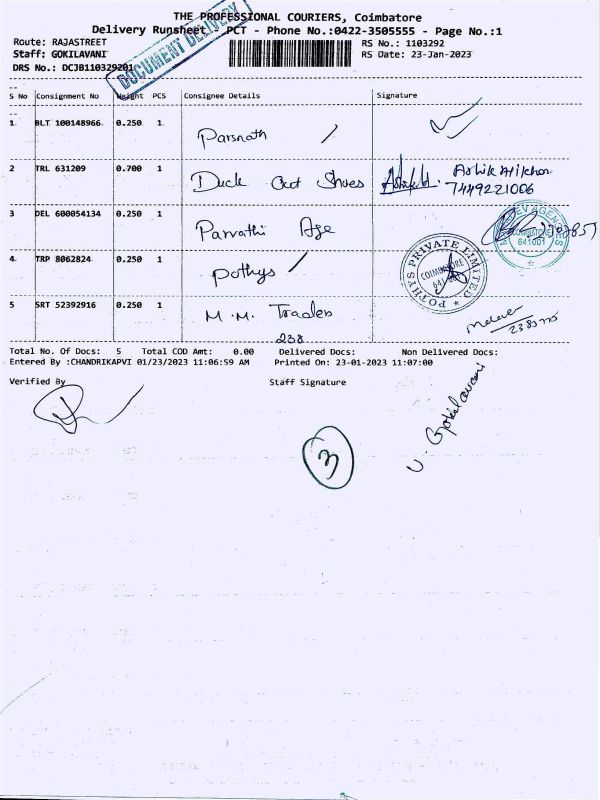 THE PROFESSIONAL COURIERS, Coimbatore
Delivery Runsheet - PCT - Phone No.:0422-3505555 - Page No.:1
DOCUMENT DELIVERY
Route: RAJASTREET
RS No.: 1103292
Staff: GOKILAVANI
RS Date: 23-Jan-2023
DRS No.: DCJB110329201
S No Consignment No Weight PCS Consignee Details Signature
1 BLT 100148966 0.250 1 Parsnath
2 TRL 631209 0.700 1 Duck Out Shoes
7449221006
3 DEL 600054134 0.250 1 Parvathi Age
641001
4 TRP 8062824 0.250 1 Pothys
POTHYS PRIVATE LIMITED
COIMBATORE
5 SRT 52392916 0.250 1 M.M. Traders
238
Total No. Of Docs: 5 Total COD Amt: 0.00 Delivered Docs: Non Delivered Docs:
Entered By :CHANDRIKAPVI 01/23/2023 11:06:59 AM Printed On: 23-01-2023 11:07:00
Verified By Staff Signature
U. Gokilavani
3